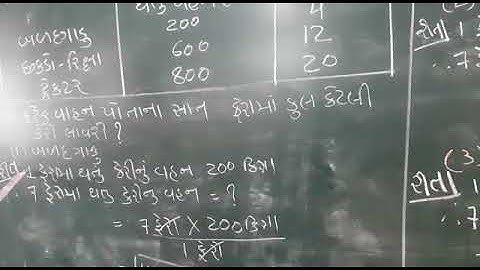 બળદગાડુ 200 4
છકડા-રિક્ષા 600 12
ટ્રેકટર 800 20
દરેક વાહન પોતાના સાત ફેરામાં કુલ કેટલી
કેરી લાવશે ?
(1) બળદગાડુ
રીત 1 ફેરામાં થતુ કેરીનું વહન 200 કિગ્રા
∴ 7 ફેરામાં થતુ કેરીનુ વહન = ?
= 7 ફેરા X 200 કિગ્રા
1 ફેરો
રીત 1
∴ 7
(3)
રીત 1
∴ 7